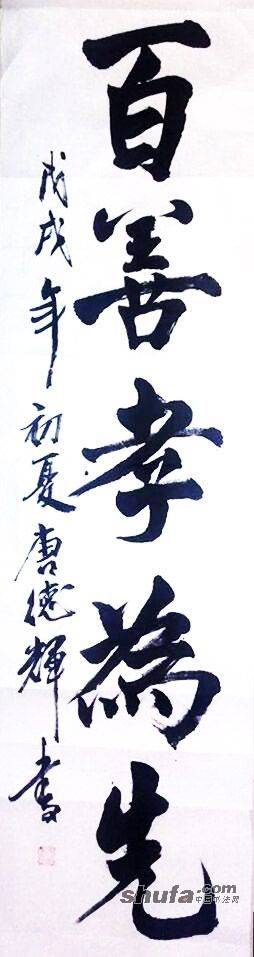 百善孝為先
戊戌年初夏唐德輝書
shufa.com
中国书法网